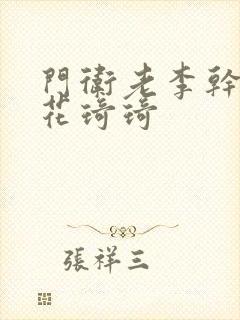 門衛老李幹
花琦琦
張祥三